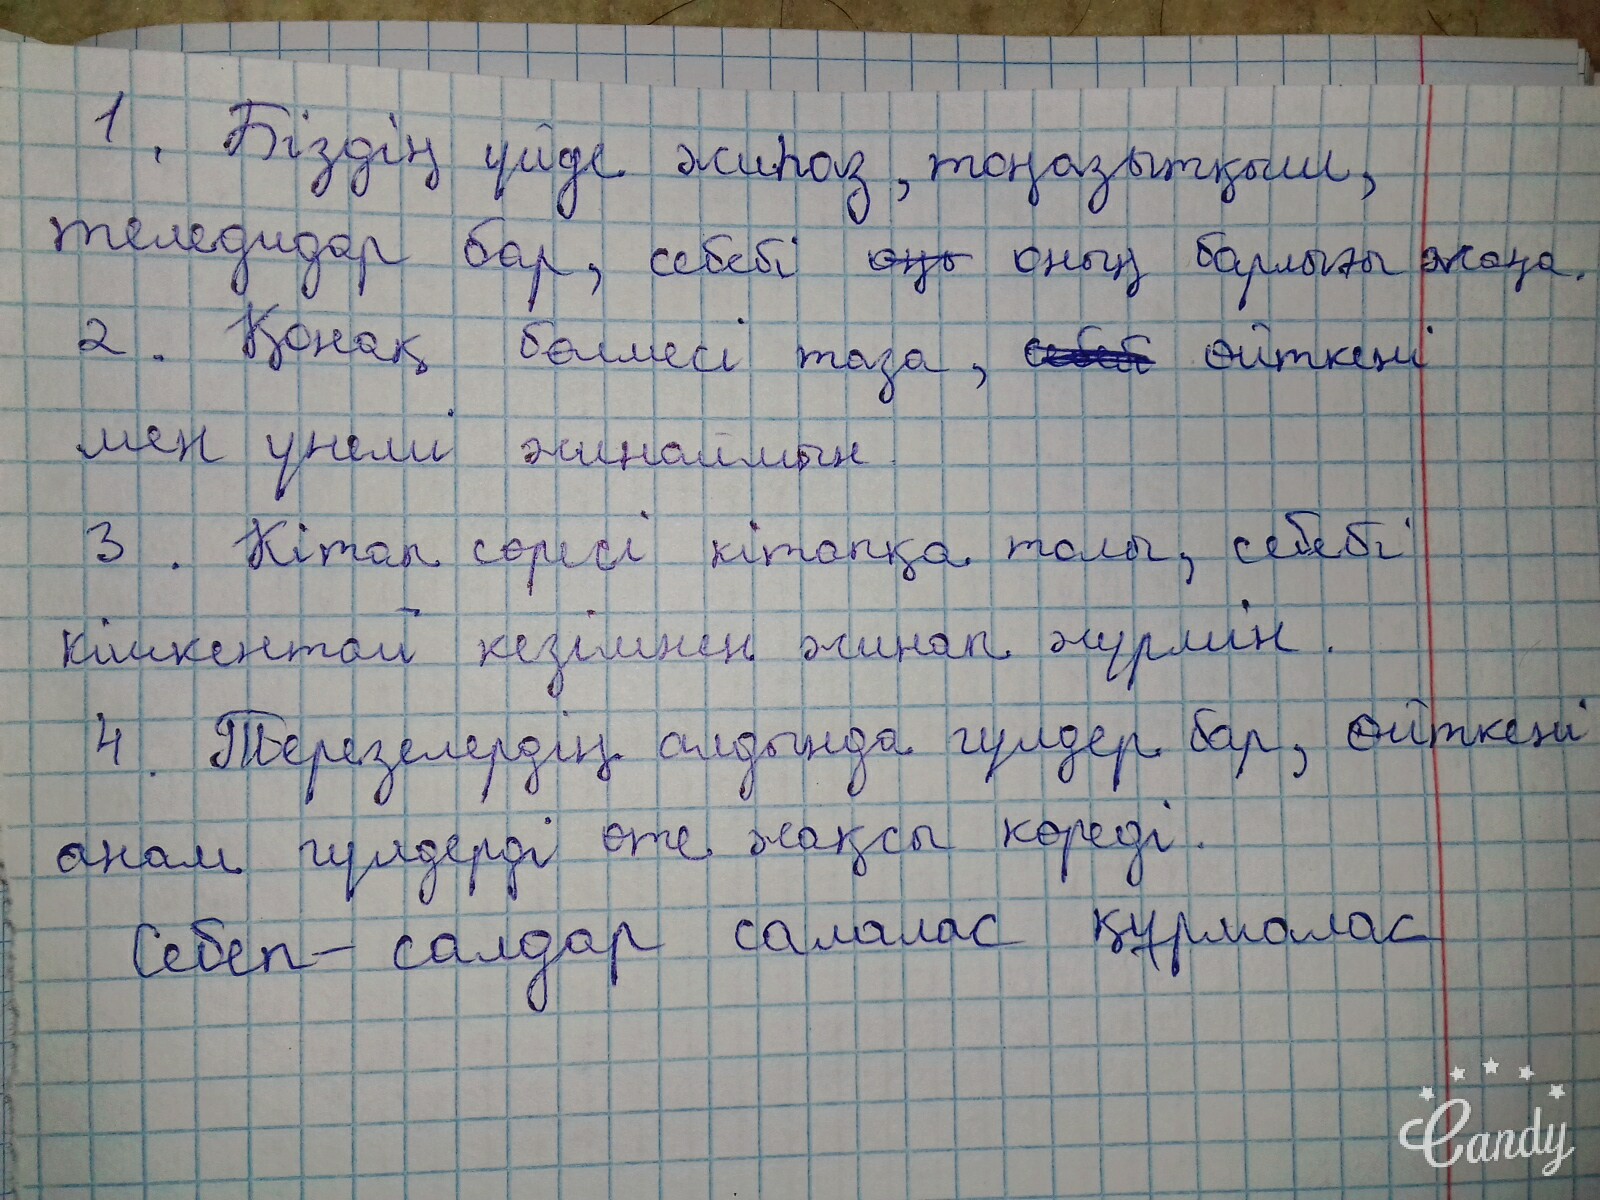 1. Біздің үйде жиһаз, тоңазытқыш,
теледидар бар, себебі оңы оның барлығы жаңа.
2. Қонақ бөлмесі таза, себебі өйткені
мен үнемі жинаймын.
3. Кітап сөресі кітапқа толы, себебі
кішкентай кезімнен жинап жүрмін.
4. Терезелердің алдында гүлдер бар, өйткені
анам гүлдерді өте жақсы көреді.
Себеп-салдар салалас құрмалас
Candy